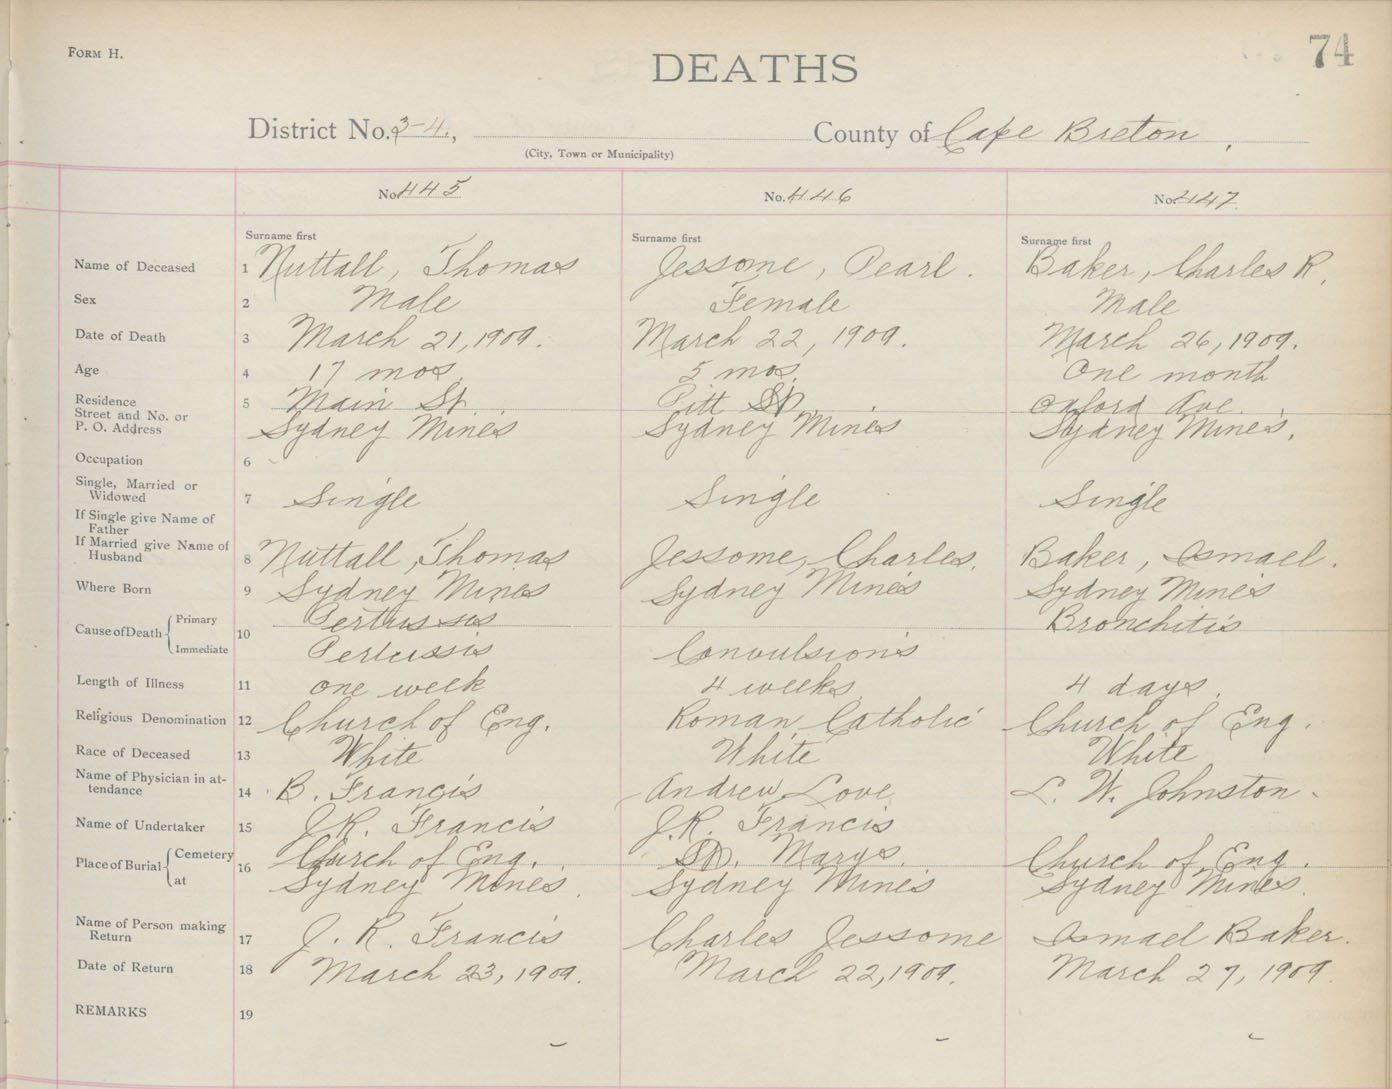 FORM H.
74
DEATHS
District No. 3-4., County of Cape Breton,
(City, Town or Municipality)
No. 445 No. 446 No. 447
Surname first Surname first Surname first
Name of Deceased 1 Nuttall, Thomas Jessome, Pearl. Baker, Charles R.
Sex 2 Male Female Male
Date of Death 3 March 21, 1909. March 22, 1909. March 26, 1909.
Age 4 17 mos. 5 mos. One month
Residence Main St. Pitt St. Oxford Ave.
Street and No. or 5
P. O. Address Sydney Mines Sydney Mines Sydney Mines.
Occupation 6
Single, Married or
Widowed 7 Single Single Single
If Single give Name of
Father
If Married give Name of
Husband 8 Nuttall, Thomas Jessome, Charles. Baker, Ismael.
Where Born 9 Sydney Mines Sydney Mines Sydney Mines
Cause of Death Primary 10 Pertussis Bronchitis
Immediate Pertussis Convulsions
Length of Illness 11 one week 4 weeks 4 days.
Religious Denomination 12 Church of Eng. Roman Catholic Church of Eng.
Race of Deceased 13 White White White
Name of Physician in at-
tendance 14 B. Francis Andrew Love L. W. Johnston
Name of Undertaker 15 J.R. Francis J.R. Francis
Place of Burial Cemetery 16 Church of Eng. St. Marys. Church of Eng.
at Sydney Mines. Sydney Mines Sydney Mines.
Name of Person making
Return 17 J. R. Francis Charles Jessome Ismael Baker.
Date of Return 18 March 23, 1909. March 22, 1909. March 27, 1909.
REMARKS 19